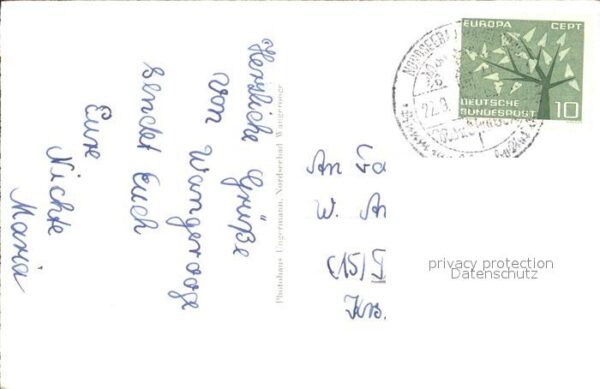 Herzliche Grüße
von Wangerooge
sendet Euch
Eure
Nichte
Maria
Photohaus Ungermann, Nordseebad Wangerooge
EUROPA CEPT
DEUTSCHE
BUNDESPOST 10
NORDSEEBAD
22.9.
An Fa
W. A
(15)
Krs.
privacy protection
Datenschutz